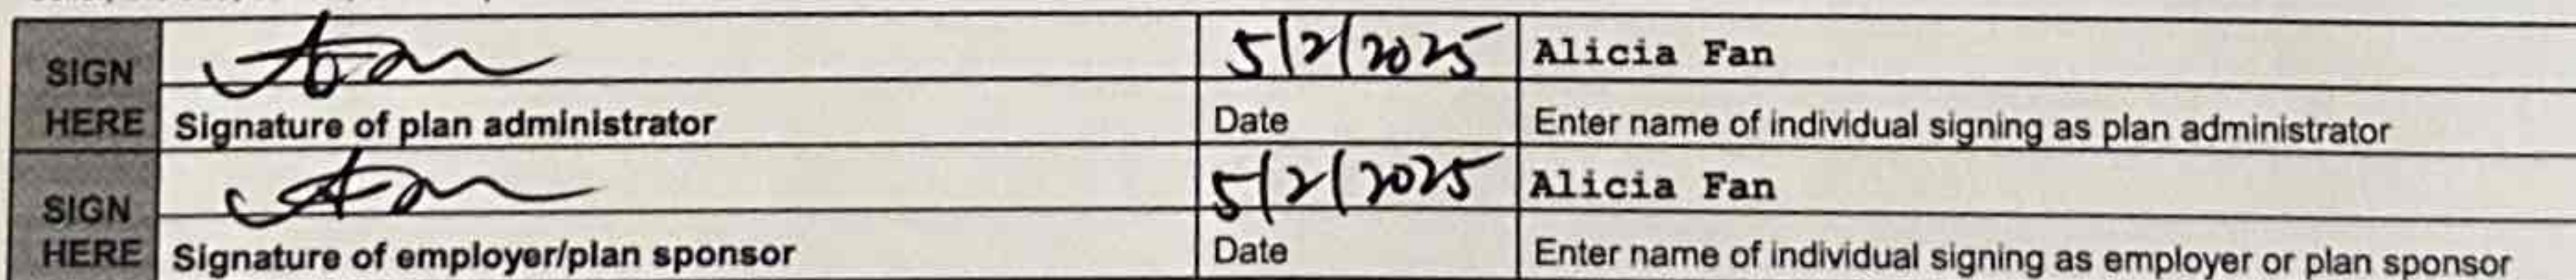 SIGN HERE
5/2/2025
Alicia Fan
Signature of plan administrator
Date
Enter name of individual signing as plan administrator
SIGN HERE
5/2/2025
Alicia Fan
Signature of employer/plan sponsor
Date
Enter name of individual signing as employer or plan sponsor